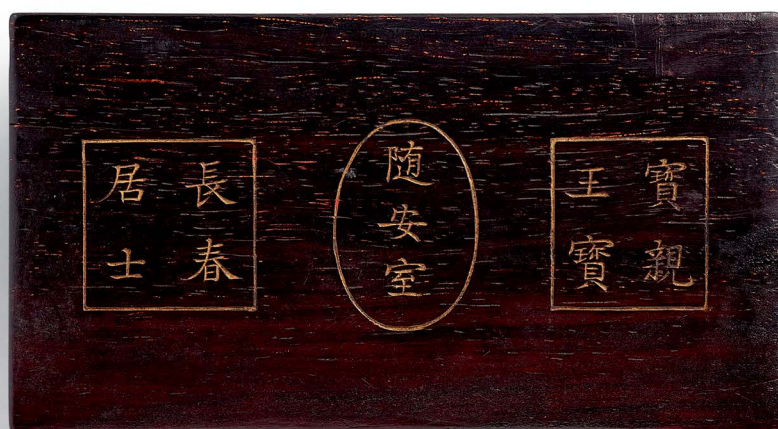 寶親
王寶
随安室
長春
居士